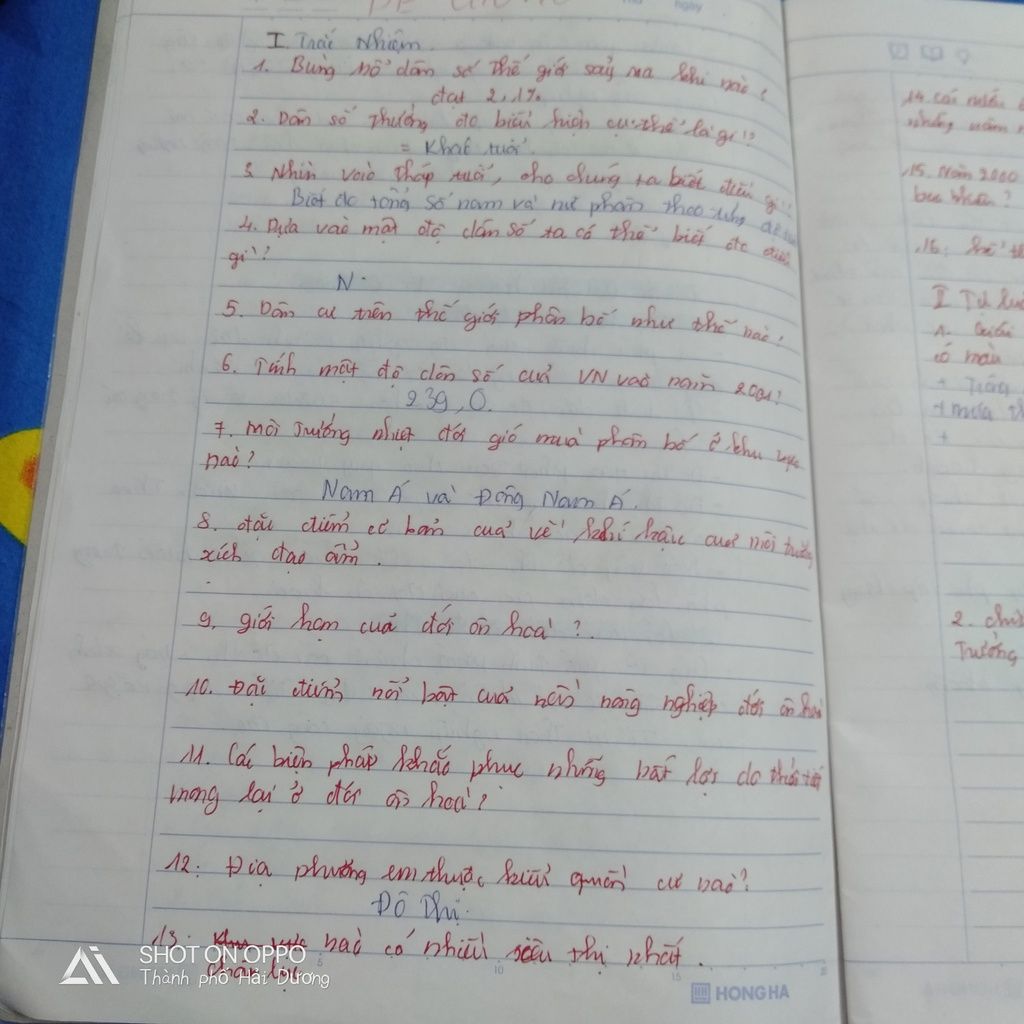 ngày
I. Trắc Nhiệm.
1. Bùng nổ dân số thế giới sảy ra khi nào?
đạt 2,1%
2. Dân số thường đc biểu hiện cụ thể là gì??
= Khai tuổi.
3. Nhìn vào tháp tuổi, cho chúng ta biết điều gì??
Biết đc tổng số nam và nữ phân theo từng
4. Dựa vào mật độ dân số ta có thể biết đc điều
gì??
N.
5. Dân cư trên thế giới phân bố như thế nào?
6. Tính mật độ dân số của VN vào năm 2001?
239,0.
7. Môi trường nhiệt đới gió mùa phân bố ở khu vực
nào?
Nam Á và Đông Nam Á.
8. đặc điểm cơ bản của về khí hậu của môi trường
xích đạo ẩm.
9. giới hạn của đới ôn hoà?.
10. Đặc điểm nổi bật của nền nông nghiệp đới ôn hoà
11. Các biện pháp khắc phục những bất lợi do thời tiết
mang lại ở đới ôn hoà?
12. Địa phương em thuộc kiểu quần cư nào?
Đô Thị.
13. nào có nhiều siêu thị nhất.
Châu lục
SHOT ON OPPO
Thành phố Hải Dương
5 10 15
HONG HA
14. Các nước
những năm
15. Năm 2000
bao nhiêu?
16.
II Tự luận
1.
có màu
+
+ mưa
+
2.
Trường